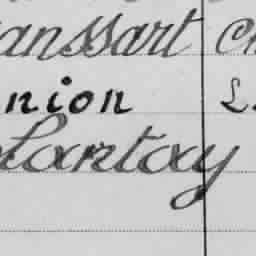 anssart Ch
nion L.
lantay